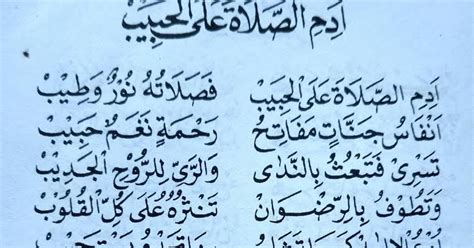 اَدِمِ الصَّلَاةَ عَلَى الْحَبِيبِ
اَدِمِ الصَّلَاةَ عَلَى الْحَبِيبْ فَصَلَاتُهُ نُوْرٌ وَطِيْبْ
اَنْفَاسُ جَنَّاتٍ مَفَاتِحُ رَحْمَةٍ نَغَمٌ حَبِيْبْ
تَسْرِىْ فَتَبْعَثُ بِالنَّدٰى وَالرَّيِّ لِلرُّوْحِ الْجَدِيْبْ
وَتَطُوْفُ بِالرِّضْوَانِ تَنْثُرُهُ عَلَى كُلِّ الْقُلُوْبْ